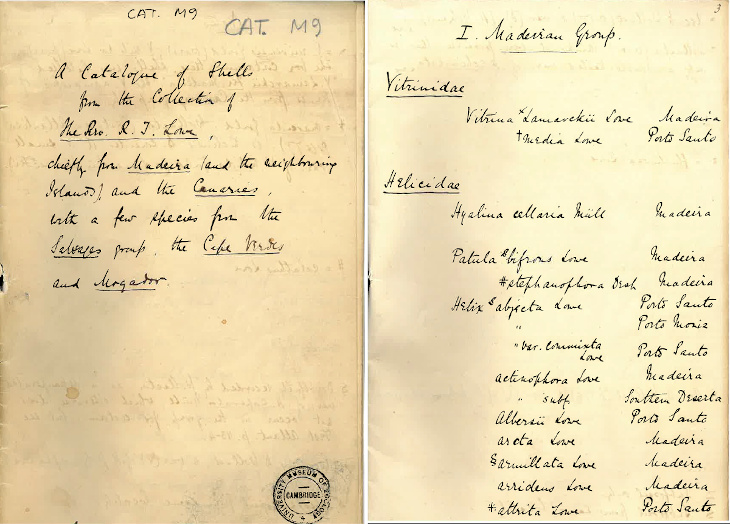 CAT. M9
CAT. M9
A Catalogue of Shells
from the Collection of
The Rev. R. T. Lowe,
chiefly from Madeira (and the neighbouring
Islands) and the Canaries,
with a few species from the
Salvages group, the Cape Verdes
and Mogador.
UNIVERSITY MUSEUM OF ZOOLOGY
CAMBRIDGE
3
I. Madeiran Group.
Vitrinidae
Vitrina × Lamarckii Lowe Madeira
† media Lowe Porto Santo
Helicidae
Hyalina cellaria Müll Madeira
Patula § bifrons Lowe Madeira
# stephanophora Desh Madeira
Helix § abjecta Lowe Porto Santo
" Porto Moniz
" var. commixta Lowe Porto Santo
actinophora Lowe Madeira
" subf. Southern Deserta
Albersii Lowe Porto Santo
arcta Lowe Madeira
§ armillata Lowe Madeira
arridens Lowe Madeira
* attrita Lowe Porto Santo